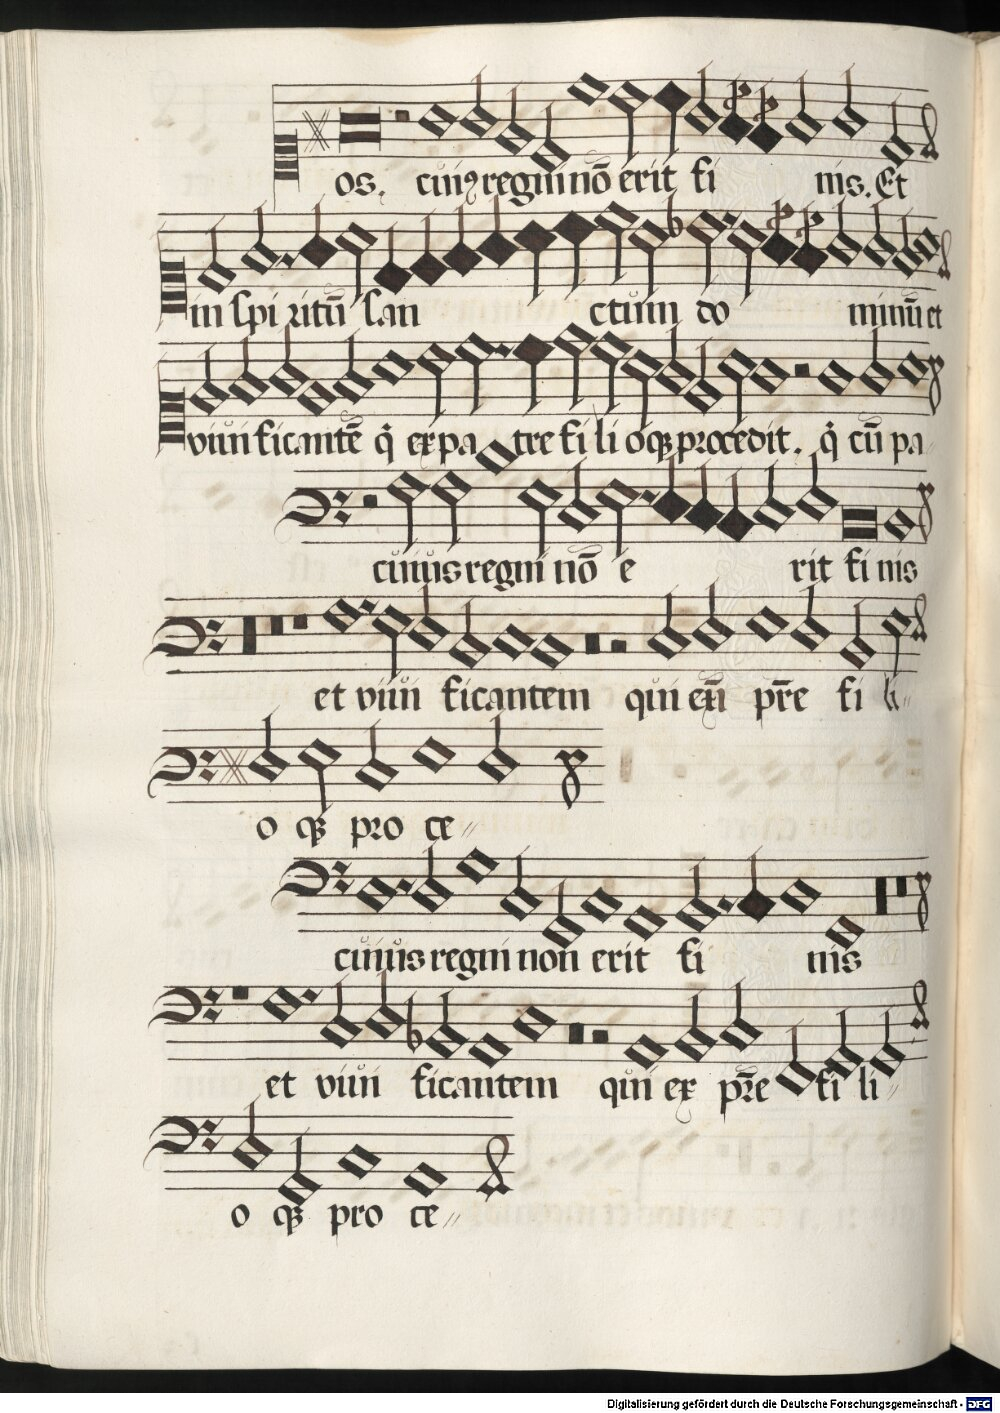 os. cuiꝰ regni nō erit fi nis. Et
in spi ritū san ctum do minū et
viuificantē q̇ ex pa tre fi li oqꝫ procedit. q̇ cū pa
cuius regni nō e rit fi nis
et viui ficantem qui exn̄ pr̄e fi li
o qꝫ pro ce
cuius regni non erit fi nis
et viui ficantem qui ex pr̄e fi li
o qꝫ pro ce
Digitalisierung gefördert durch die Deutsche Forschungsgemeinschaft - DFG